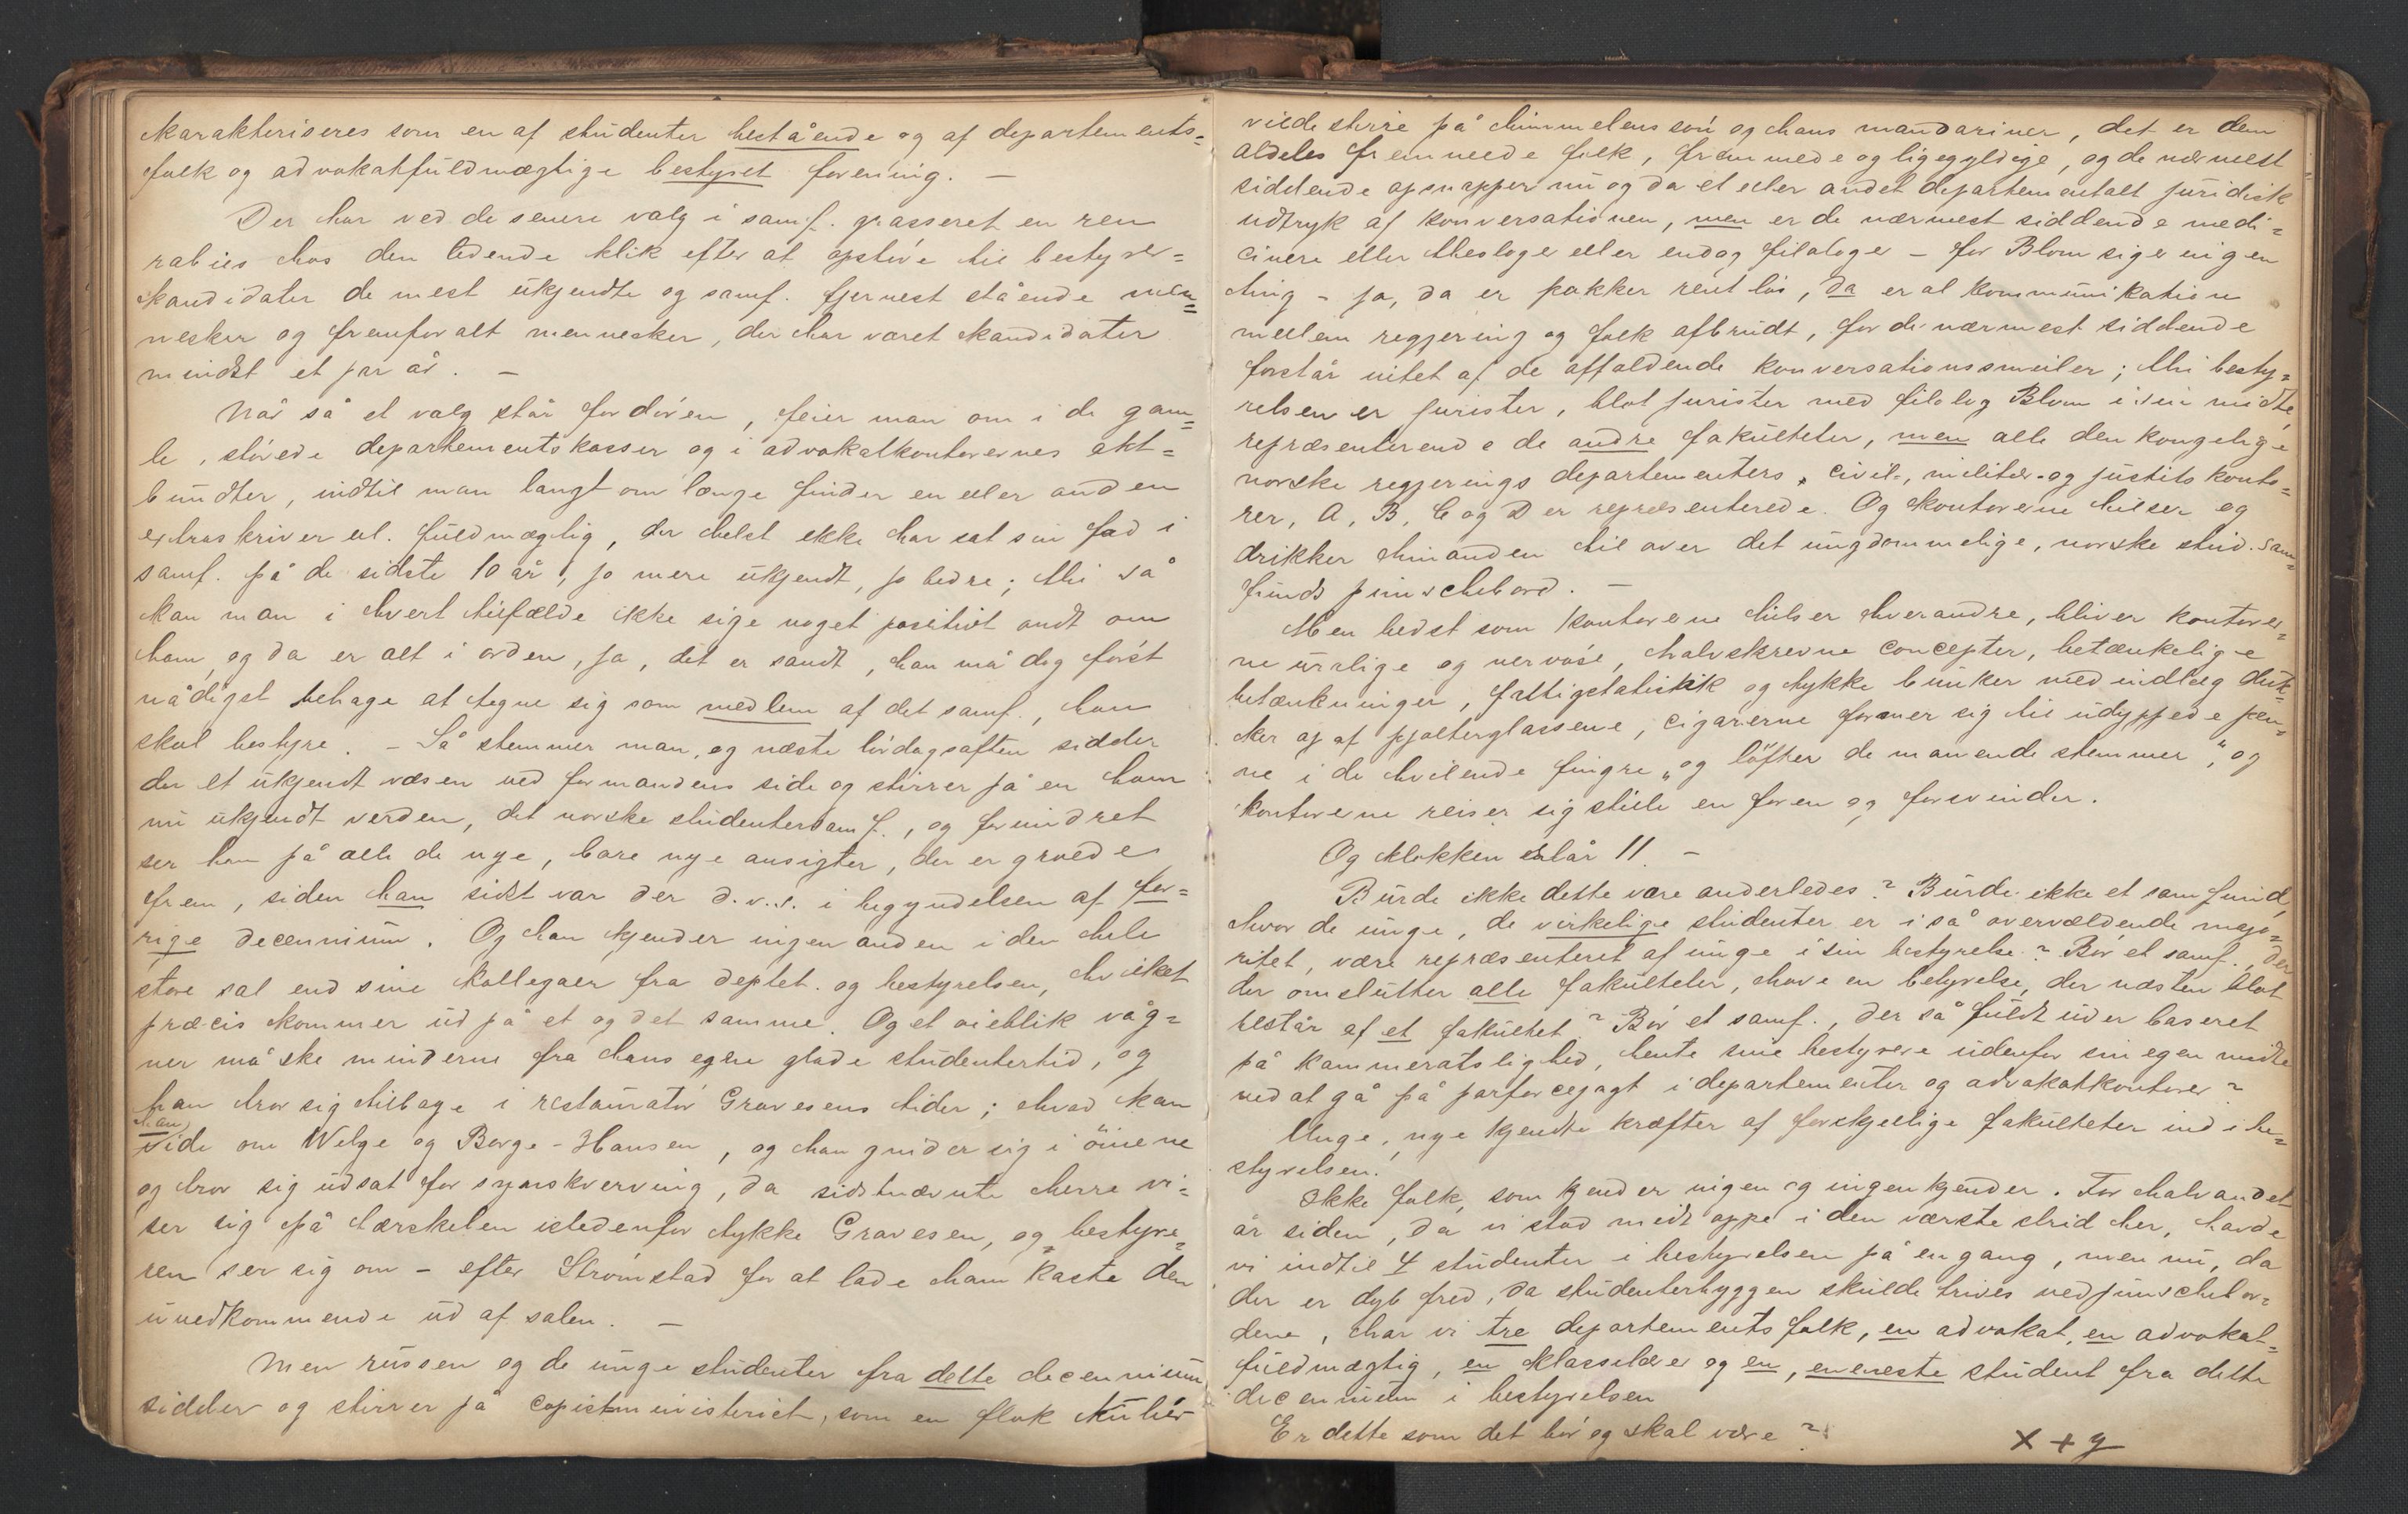 karakteriseres som en af studenter bestående og af departements=
folk og advokatfuldmægtige bestyret forening. —
Der har ved de senere valg i samf. grasseret en ren
rabies hos den ledende klik efter at opstøve til bestyrer=
kandidater de mest ukjendte og samf. fjernest stående men=
nesker og fremforalt mennesker, der har været kandidater
mindst et par år. —
Når så et valg står for døren, feier man om i de gam=
le, støvede departementskasser og i advokatkontorernes akt=
bundter, indtil man langt om længe finder en eller anden
extraskriver el. fuldmægtig, der helst ikke har sat sin fod i
samf. på de sidste 10 år, jo mere ukjendt, jo bedre; thi så
kan man i hvert tilfælde ikke sige noget positivt ondt om
ham, og da er alt i orden, ja, det er sandt, han må dog først
nådigst behage at tegne sig som medlem af det samf., han
skal bestyre. – Så stemmer man, og næste lørdagsaften sidder
der et ukjendt væsen ved formandens side og stirrer på en ham
nu ukjendt verden, det norske studentersamf., og forundret
ser han på alle de nye, bare nye ansigter, der er groede
frem, siden han sidst var der d.v.s. i begyndelsen af for=
rige decennium. Og han kjender ingen anden i den hele
store sal end sine kollegaer fra deptet. og bestyrelsen, hvilket
præcis kommer ud på et og det samme. Og et øieblik våg=
ner måske minderne fra hans egen glade studentertid, og
han tror sig tilbage i restauratør Gravesens tider; hvad kan
han
vide om Welge og Borge-Hansen, og han gnider sig i öinene
og tror sig udsat for synskverving, da sidstnævnte herre vi=
ser sig på tærskelen istedenfor tykke Gravesen, og bestyre=
ren ser sig om – efter Strömstad for at lade ham kaste den
uvedkommende ud af salen. —
Men russen og de unge studenter fra dette decennium
sidder og stirrer på copistministeriet, som en flok kulier
vilde stirre på himmelens søn og hans mandariner, det er dem
aldeles fremmede folk, fremmede og ligegyldige, og de nærmest
siddende opsnapper nu og da et eller andet departementalt juridisk
udtryk af konversationen, men er de nærmest siddende medi=
cinere eller theologer eller endog filologer – for Blom siger ingen
ting – ja, da er pokker rent løs, da er al kommunikation
mellem regjering og folk afbrudt, for de nærmest siddende
forstår intet af de affaldende konversationssmuler; thi besty=
relsen er jurister, blot jurister med filolog Blom i sin midte,
repræsenterende de andre fakulteter, men alle den kongelige
norske regjerings departementers civil-, militær- og justits konto=
rer, A, B, C og D er repræsenterede. Og kontorerne hilser og
drikker hinanden til over det ungdommelige, norske stud. sam=
funds punschebord. —
Men bedst som kontorerne hilser hverandre, bliver kontorer=
ne urolige og nervøse, halvskrevne concepter, betænkelige
betænkninger, fattigstatistik og tykke bunker med indlæg duk=
ker op af pjolterglassene, cigarerne former sig til udyppede pen=
ne i de hvilende fingre „og löfter de manende stemmer", og
kontorerne reiser sig stille en for en og forsvinder.
Og klokken slår 11. —
Burde ikke dette være anderledes? Burde ikke et samfund,
hvor de unge, de virkelige studenter er i så overvældende majo=
ritet, være repræsenteret af unge i sin bestyrelse? Bør et samf., der
der omslutter alle fakulteter, have en betyrelse, der næsten blot
består af et fakultet? Bør et samf., der så fuldt ud er baseret
på kammeratslighed, hente sine bestyrere udenfor sin egen midte
ved at gå på parforcejagt i departementer og advokatkontorer?
Unge, nye kjendte kræfter af forskjellige fakulteter ind i be=
styrelsen!
Ikke folk, som kjender ingen og ingen kjender. For halvandet
år siden, da vi stod midt oppe i den værste strid her, havde
vi indtil 4 studenter i bestyrelsen på engang, men nu, da
der er dyb fred, da studenterhyggen skulde trives ved punschebor=
dene, har vi tre departementsfolk, en advokat, en advokat=
fuldmægtig, en klasselærer og en, eneneste student fra dette
decennium i bestyrelsen
Er dette som det bør og skal være?
x + y